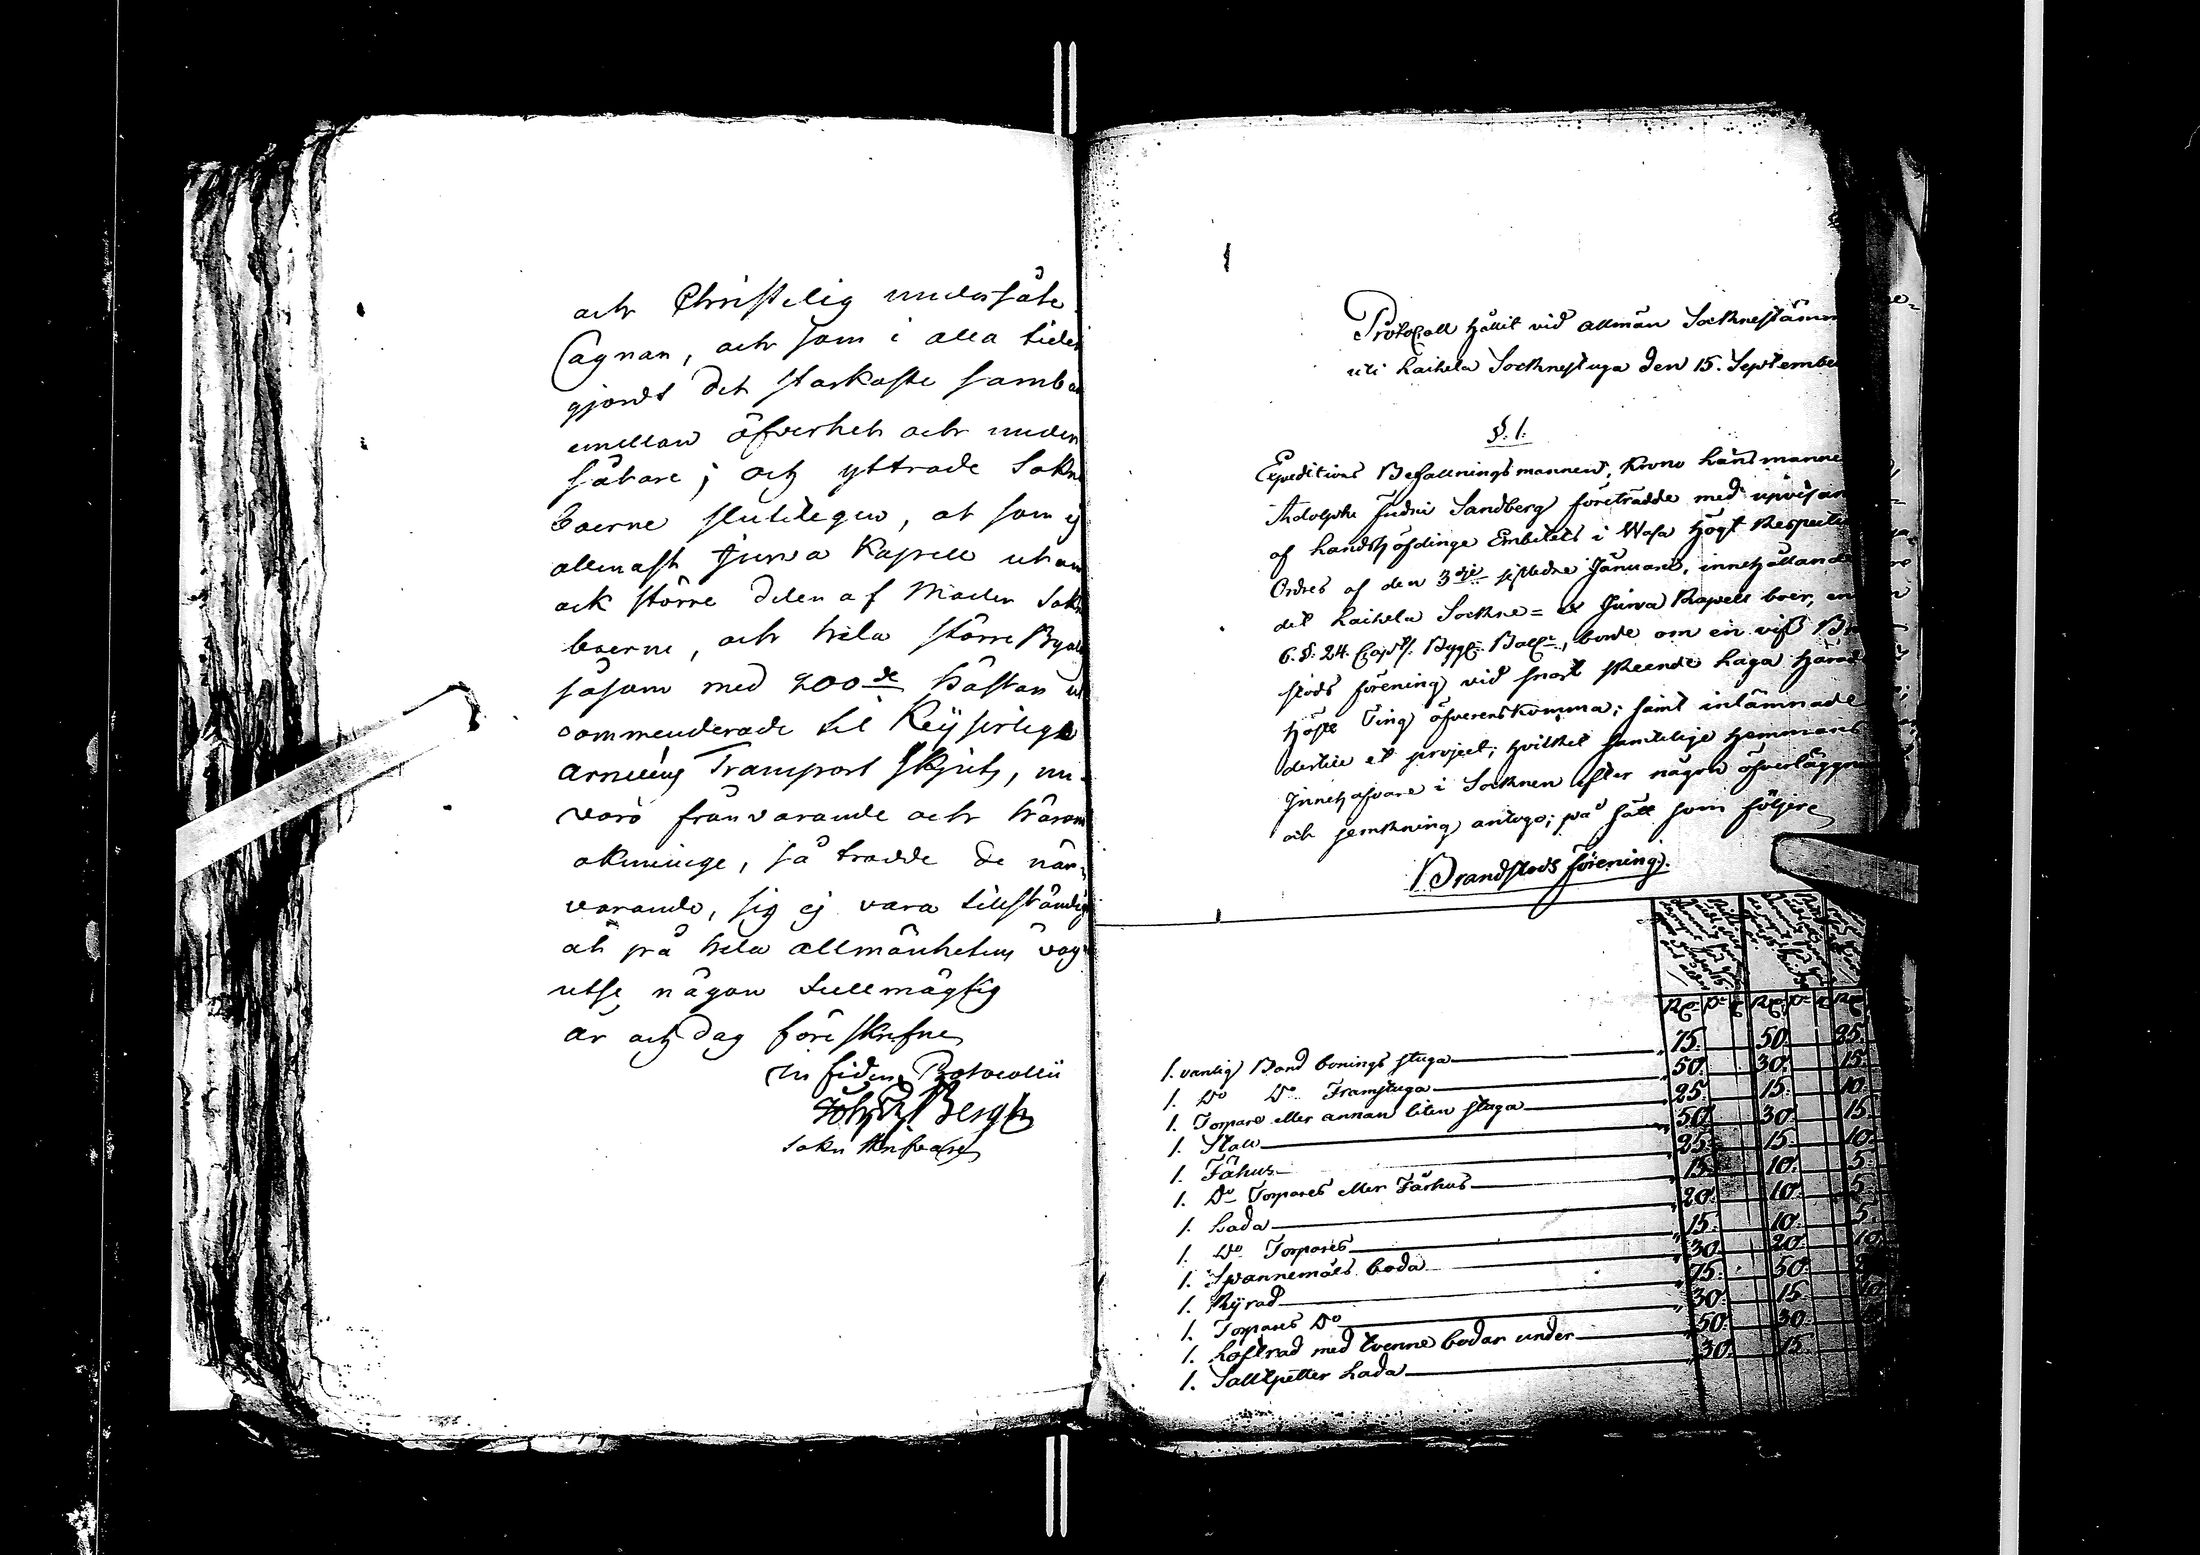 och Christelig undersåte
Lagnan, och som i alla tider
gjordt det starkaste samba
emellan öfverhet och under
såtare; och yttrade Sokn
boerne sluteligen, at som ej
allenast Jurva Kapell utan
ock större delen af Moder Sok
boerne, och hela större Byar
såsom med 200de Hästar u
commenderade til Keijserliga
Arméens Transport Skjuts, nu
voro frånvarande och härom
okunnige, så trodde de när-
varande, sig ej vara tillständig
at på hela allmänhetens väg
utse någon fullmägtig
År och dag föreskrefne
In fidem Protocollii
Joh: Bergh
Sokn Skrifvare
Protocoll hållit vid allmän Socknestämm
uti Laihela Socknestuga den 15. September
§. 1.
Expeditions Befallningsmannen, Krono Länsmannen
Adolph Sandberg företrädde med upvisan
af Landshöfdinge Embetets i Wasa högt Respective
Ordres af den 3dje sistledne Januarii, innehållande
det Laihela Sockne= och Jurva Kapells boer, en
6. §. 24. Cap: Bygg: Balk:, borde om en viss Br
stods förening vid snart skeende laga Härads
Höste Ting öfverenskomma; samt inlämnade
dertill et project, hvilket samtelige Hemmans
Innehafvare i Socknen efter någon öfverläggn
och jemkning antogo; på sätt som följer
Brandstods förening.
Rf: Pr Rf: Pr Rf:
1. vanlig Bond bonings stuga 75. 50. 25.
1. Do Do Framstuga 50. 30. 15.
1. Torpare eller annan liten stuga 25. 15. 10.
1. Stall 50. 30. 15.
1. Fähus 25. 15. 10.
1. Do Torpares eller Fårhus 15. 10. 5.
1. Lada 20. 10. 5.
1. Do Torpares 15. 10. 5.
1. Spannemåls boda 30. 20. 10.
1. Rij rad 75. 50.
1. Torpares Do 30. 15.
1. Loftrad med tvenne bodar under 50. 30.
1. Salltpetter Lada 30. 15.